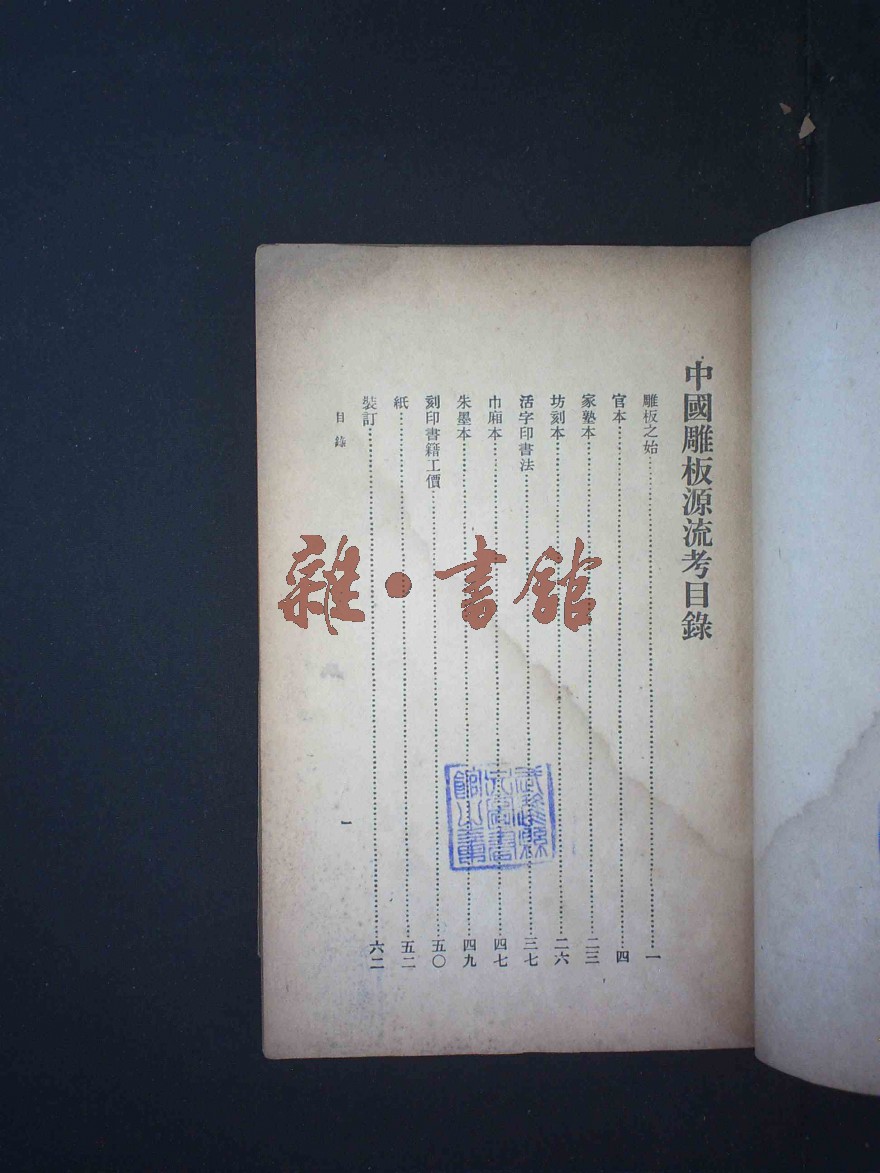 中國雕板源流考目錄
雕板之始……一
官本……四
家塾本……二三
坊刻本……二六
活字印書法……三七
巾廂本……四七
朱墨本……四九
刻印書籍工價……五〇
紙……五二
裝訂……六二
目錄
一
雜·書館